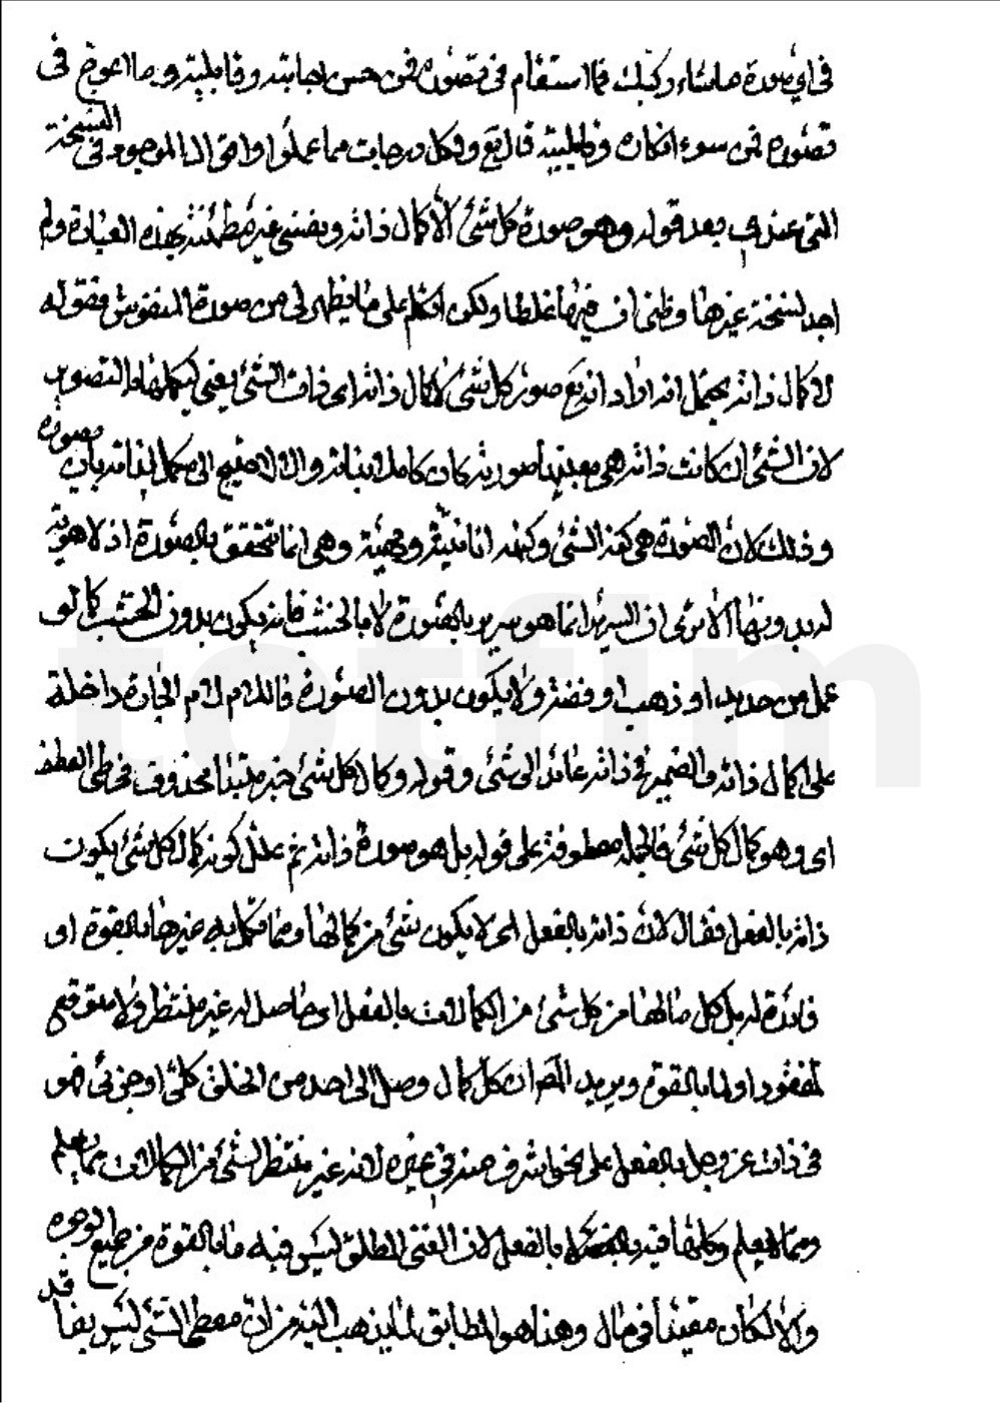 في اي صورة ما شاء ركبك فما استقام في تصوره فمن حسن اجابته وقابليته وما اعوج في
تصوره فمن سوء افكاره وقابليته قال تع ولكل درجات مما عملوا واعلم ان الموجود في النسخة
التي عندي بعد قوله وهو صورة كل شئ لا كمال ذاته ونفسي غير مطمئنة بهذه العبارة ولم
اجد نسخة غيرها وظني ان فيها غلطا ولكن اتكلم على ما يظهر لي من صورة النقوش فقوله
لا كمال ذاته يحتمل انه اراد انه تع صور كل شئ لا كمال ذاته اي ذات الشئ يعني ليكملها بالتصوير
لان الشئ ان كانت ذاته هي بعينها صورته كان كاملا بذاته والا لاحتيج الى مكمل لذاته بان يصوره
وذلك لان الصورة هي كنه الشئ وكنهه انانيته ومهيته وهي انما تتحقق بالصورة اذ لا هوية
له بدونها الا ترى ان السرير انما هو سرير بالصورة لا بالخشب فانه يكون بدون الخشب كما لو
عمل من حديد او ذهب او فضة ولا يكون بدون الصورة فاللام لام الجارة داخلة
على اكمال ذاته والضمير في ذاته عائد الى شئ وقوله وكمال كل شئ خبر مبتدا محذوف العطف
اي وهو كمال كل شئ فالجملة معطوفة على قوله بل هو صورة ذاته ثم علل كونه كمال كل شئ بكون
ذاته بالفعل فقال لان ذاته بالفعل اي لا يكون شئ من كمالها ومما تكمل به غيرها بالقوة او
فاقدة له بل كل مالها من كل شئ من الكمالات بالفعل اي حاصل له غير منتظر ولا متوقع
لمفقود او لما بالقوة ويريد المص ان كل كمال وصل الى احد من الخلق كلي او جزئي فهو
في ذات عز وجل بالفعل على نحو اشرف منه في غيره لانه غير منتظر لشئ من الكمالات مما يعلم
ومما لا يعلم وكلها فيه بالفعل لان الغنى المطلق ليس فيه ما بالقوة من جميع الوجوه
والا لكان مقيدا في حال وهذا هو المطابق لما يذهب اليه من ان معطي الشئ ليس بفاقد